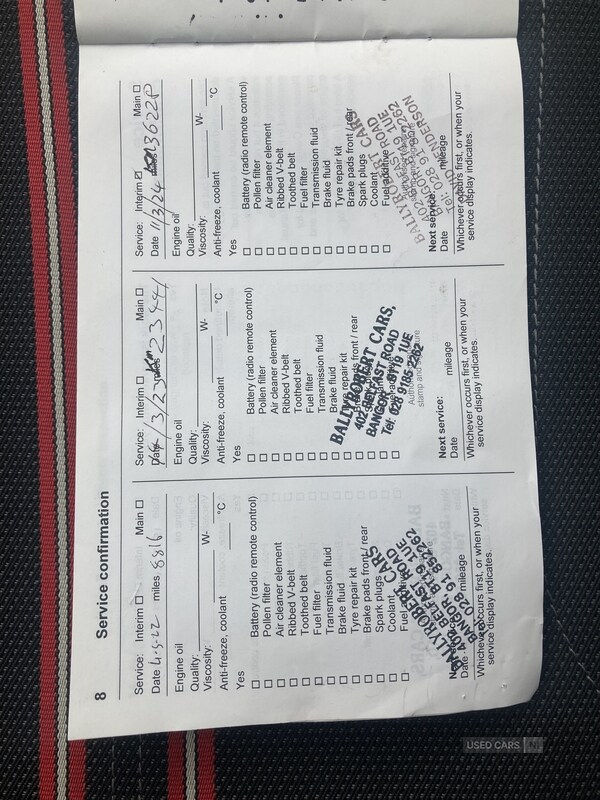 8 Service confirmation
Service: Interim ☐ Main ☐
Date 4.5.22 miles 8816
Engine oil
Quality:
Viscosity: W-
Anti-freeze, coolant °C
Yes
☐ Battery (radio remote control)
☐ Pollen filter
☐ Air cleaner element
☐ Ribbed V-belt
☐ Toothed belt
☐ Fuel filter
☐ Transmission fluid
☐ Brake fluid
☐ Tyre repair kit
☐ Brake pads front / rear
☐ Spark plugs
☐ Coolant
☐ Fuel
BALLYROBERT CARS
402 BELFAST ROAD
BANGOR, BT19 1UE
028 91 852262
Date mileage
Whichever occurs first, or when your
service display indicates.
Service: Interim ☐ Main ☐
Date /3/23 Km 23441
Engine oil
Quality:
Viscosity: W-
Anti-freeze, coolant °C
Yes
☐ Battery (radio remote control)
☐ Pollen filter
☐ Air cleaner element
☐ Ribbed V-belt
☐ Toothed belt
☐ Fuel filter
☐ Transmission fluid
☐ Brake fluid
☐ Tyre repair kit
☐ Brake pads front / rear
BALLYROBERT CARS,
402 BELFAST ROAD
BANGOR BT19 1UE
Tel: 028 9185 2262
stamp and signature
Next service:
Date mileage
Whichever occurs first, or when your
service display indicates.
Service: Interim ☑ Main ☐
Date 11/3/24 36228
Engine oil
Quality:
Viscosity: W-
Anti-freeze, coolant °C
Yes
☐ Battery (radio remote control)
☐ Pollen filter
☐ Air cleaner element
☐ Ribbed V-belt
☐ Toothed belt
☐ Fuel filter
☐ Transmission fluid
☐ Brake fluid
☐ Tyre repair kit
☐ Brake pads front / rear
☐ Spark plugs
☐ Coolant
☐ Fuel additive
Next service:
Date mileage
Whichever occurs first, or when your
service display indicates.
USED CARS NI